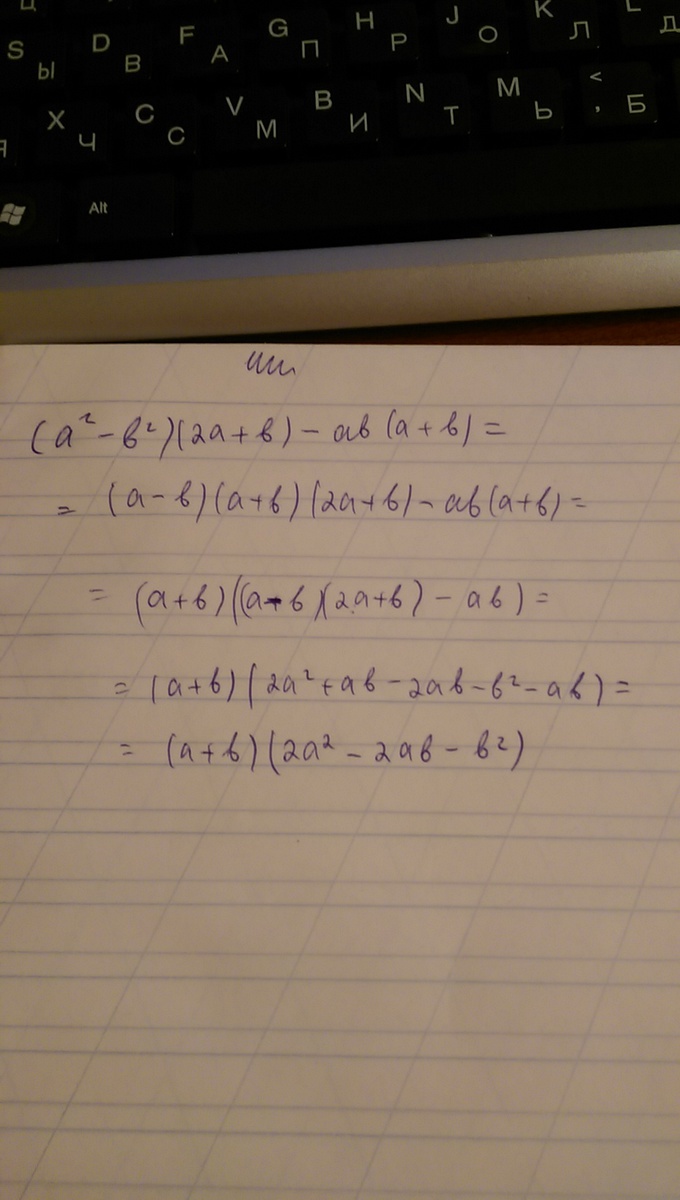 Ц
S Ы D В F А G П H Р J О K Л L Д
Я X Ч C С V М B И N Т M Ь < , Б
Alt
или
(a² - b²)(2a + b) - ab (a + b) =
= (a - b)(a + b)(2a + b) - ab(a + b) =
= (a + b)((a - b)(2a + b) - ab) =
= (a + b)(2a² + ab - 2ab - b² - ab) =
= (a + b)(2a² - 2ab - b²)